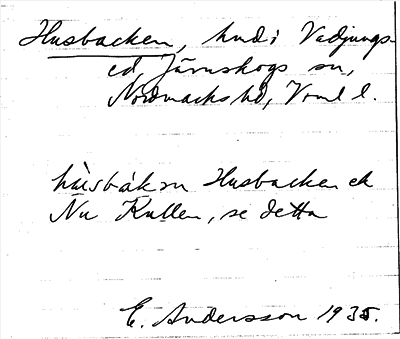 Husbacken, hmd i Vadjungs-
ed, Järnskogs sn,
Nordmarks hd, Vrml l.
hùsbákən Husbacken ek
Nu Kullen, se detta
E. Andersson 1935.